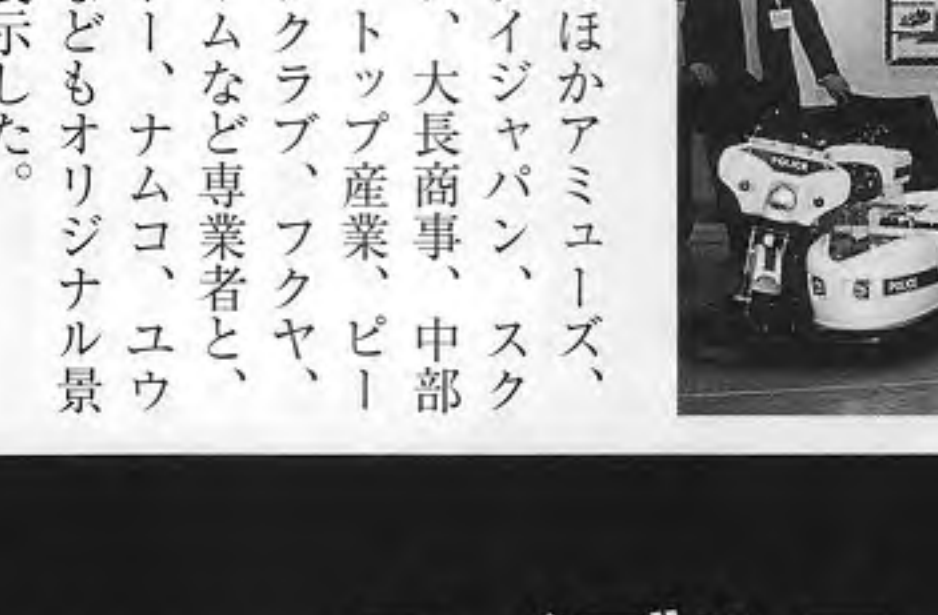 ほかアミューズ、
イジャパン、スク
、大長商事、中部
トップ産業、ピー
クラブ、フクヤ、
ムなど専業者と、
ー、ナムコ、ユウ
どもオリジナル景
示した。
POLICE
POLICE